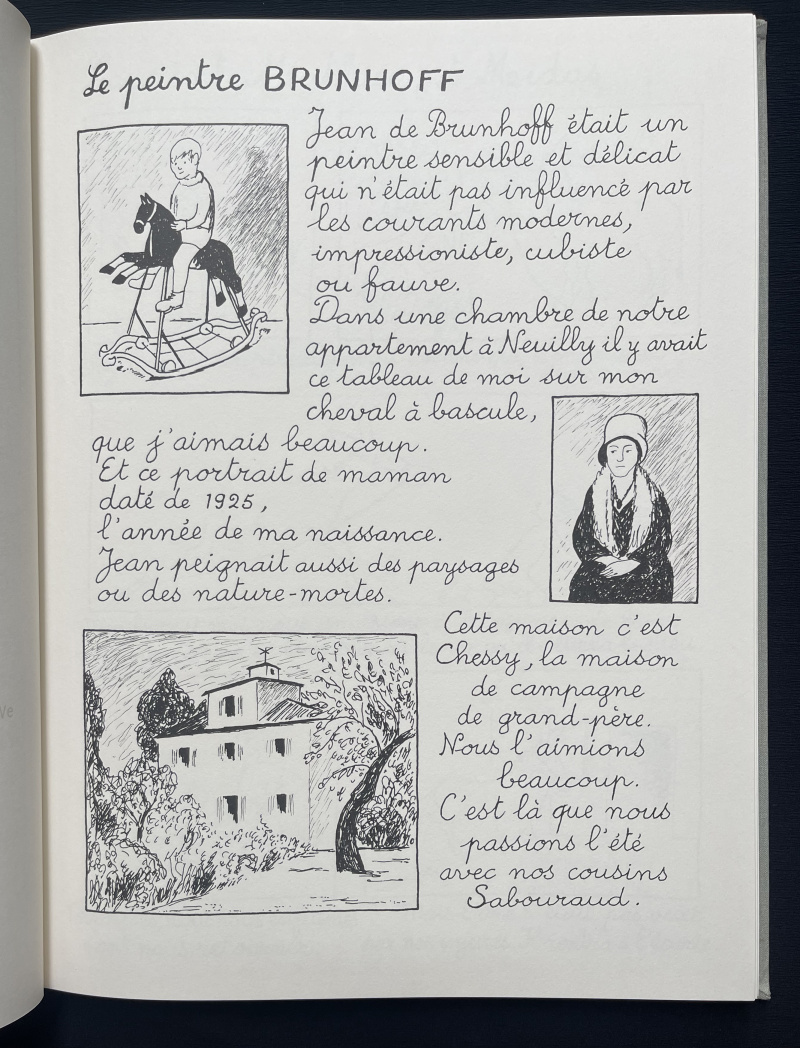 Le peintre BRUNHOFF
Jean de Brunhoff était un
peintre sensible et délicat
qui n'était pas influencé par
les courants modernes,
impressioniste, cubiste
ou fauve.
Dans une chambre de notre
appartement à Neuilly il y avait
ce tableau de moi sur mon
cheval à bascule,
que j'aimais beaucoup.
Et ce portrait de maman
daté de 1925,
l'année de ma naissance.
Jean peignait aussi des paysages
ou des nature-mortes.
Cette maison c'est
Chessy, la maison
de campagne
de grand-père.
Nous l'aimions
beaucoup.
C'est là que nous
passions l'été
avec nos cousins
Sabouraud.